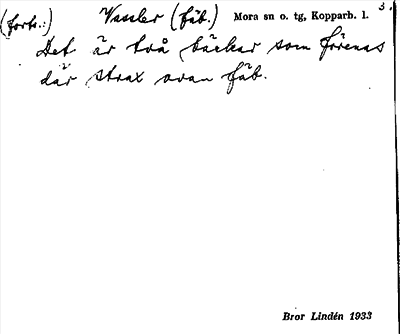 3.
(forts.:) Vassler (fäb.) Mora sn o. tg, Kopparb. l.
Det är två bäckar som förenas
där strax ovan fäb.
Bror Lindén 1933